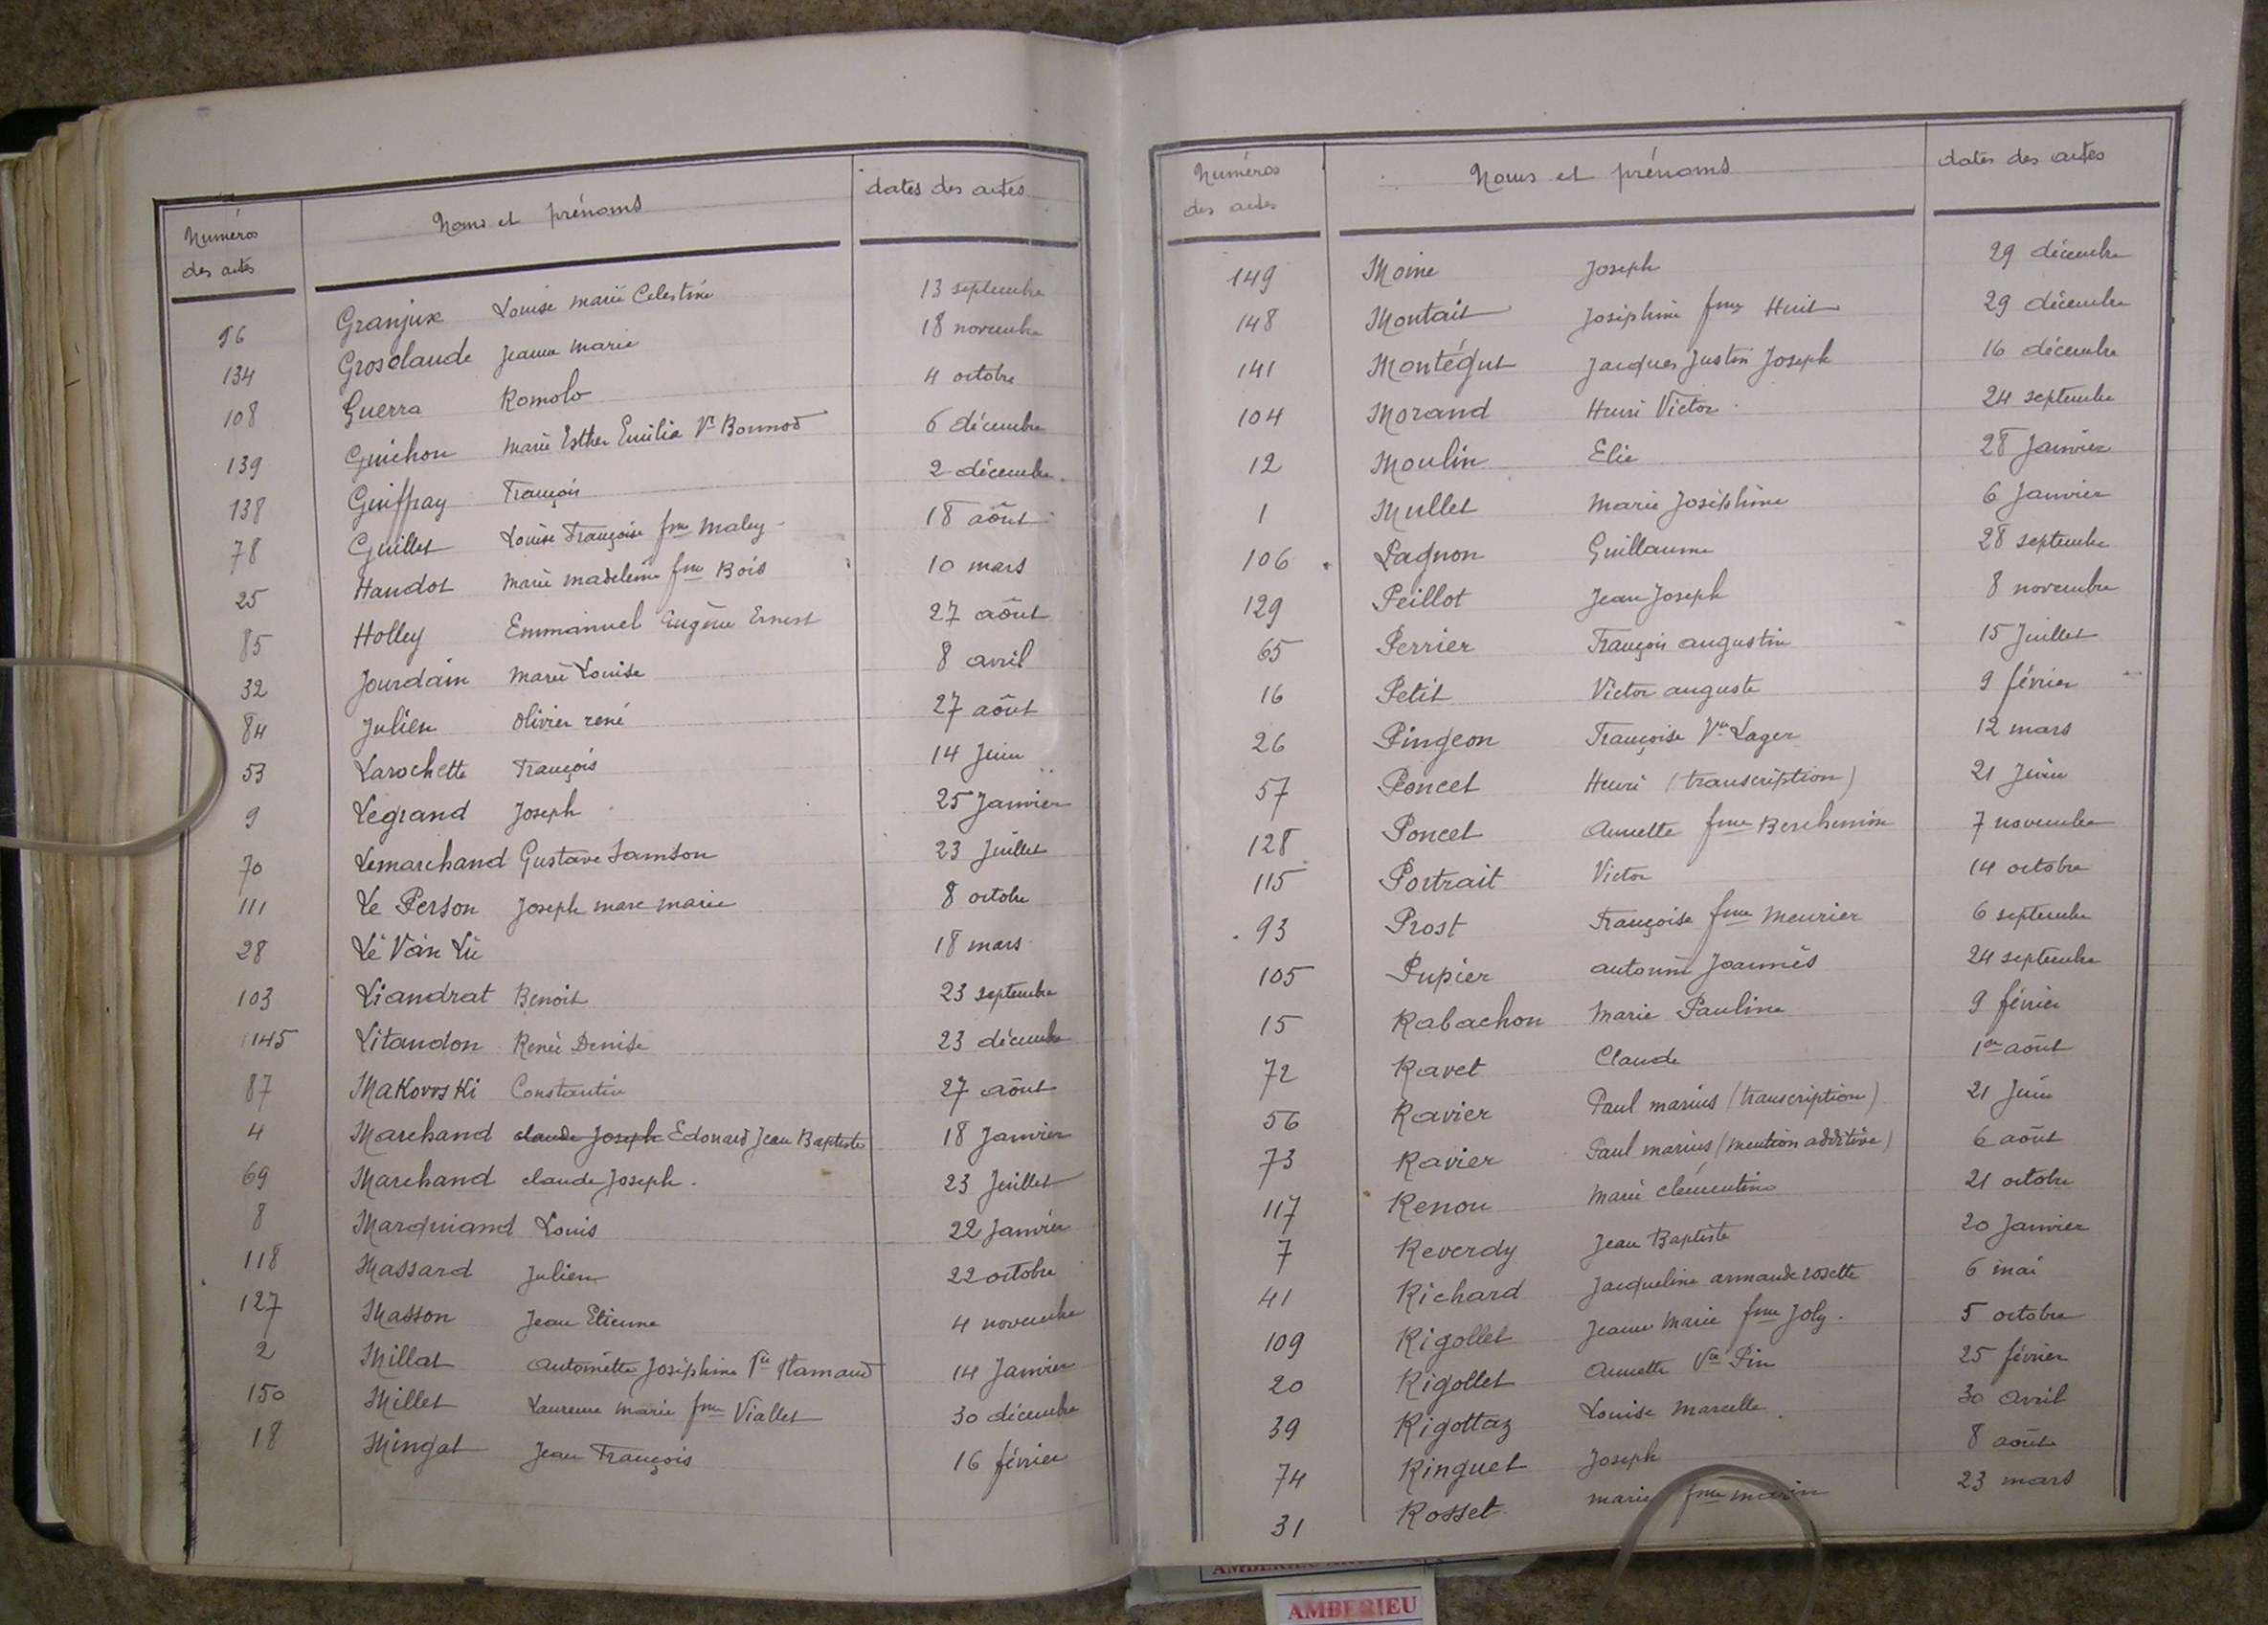 Numéros des actes Noms et prénoms dates des actes
96 Granjux Louise Marie Celestine 13 septembre
134 Grosclaude Jeanne Marie 18 novembre
108 Guerra Romolo 4 octobre
139 Guichon Marie Esther Emilia Vve Bonnod 6 décembre
138 Guiffray François 2 décembre
78 Guillet Louise Françoise fme Maley 18 août
25 Handot Marie Madeleine fme Bois 10 mars
85 Holley Emmanuel Eugène Ernest 27 août
32 Jourdain Marie Louise 8 avril
84 Julien Olivier René 27 août
53 Larochette François 14 Juin
9 Legrand Joseph 25 Janvier
70 Lemarchand Gustave Samson 23 Juillet
111 Le Person Joseph marc marie 8 octobre
28 Lê Van Lü 18 mars
103 Liandrat Benoit 23 septembre
145 Litaudon Renée Denise 23 décembre
87 Makowski Constantin 27 août
4 Marchand claude Joseph Edouard Jean Baptiste 18 Janvier
69 Marchand claude Joseph. 23 Juillet
8 Marquiand Louis 22 Janvier
118 Massard Julien 22 octobre
127 Masson Jean Etienne 4 novembre
2 Millat Antoinette Joséphine Vve 14 Janvier
150 Millet Laurence Marie fme Viallet 30 décembre
18 Mingat Jean François 16 février
Numéros des actes Noms et prénoms dates des actes
149 Moine Joseph 29 décembre
148 Montait Joséphine fme Huit 29 décembre
141 Montégut Jacques Justin Joseph 16 décembre
104 Morand Henri Victor 24 septembre
12 Moulin Elie 28 Janvier
1 Mullet Marie Joséphine 6 Janvier
106 Pagnon Guillaume 28 septembre
129 Peillot Jean Joseph 8 novembre
65 Perrier François augustin 15 Juillet
16 Petit Victor auguste 9 février
26 Pingeon Françoise Vve Lager 12 mars
57 Poncet Henri (transcription) 21 Juin
128 Poncet Annette fme 7 novembre
115 Portrait Victor 14 octobre
93 Prost Françoise fme Meunier 6 septembre
105 Pupier antonin Joannès 24 septembre
15 Rabachon Marie Pauline 9 février
72 Ravet Claude 1er août
56 Ravier Paul marius (transcription) 21 Juin
73 Ravier Paul marius (mention additive) 6 août
117 Renou Marie clémentine 21 octobre
7 Reverdy Jean Baptiste 20 Janvier
41 Richard Jacqueline armande rosette 6 mai
109 Rigollet Jeanne Marie fme Joly. 5 octobre
20 Rigollet Annette Vve Pin 25 février
39 Rigottaz Louise Marcelle 30 avril
74 Rinquet Joseph 8 août
31 Rosset marie fme marin 23 mars
AMBERIEU
AMBERIEU